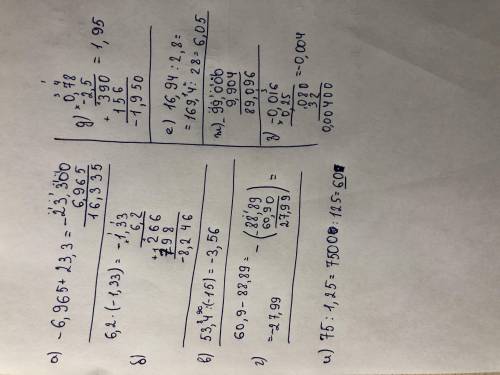 а) -6,965 + 23,3 = -23,300
6,965
16,335
б) 6,2 · (-1,33) = -1,33
6,2
+ 266
798
-8,246
в) 53,4 : (-15) = -3,56
г) 60,9 - 88,89 = - (88,89
60,90
27,99) =
= -27,99
и) 75 : 1,25 = 7500 : 125 = 60
д) × 0,78
-2,5
+ 390
156
-1,950
= 1,95
е) 16,94 : 2,8 =
= 169,4 : 28 = 6,05
ж) - 99,000
9,904
89,096
з) -0,016
× 0,25
080
32
0,00400
= -0,004